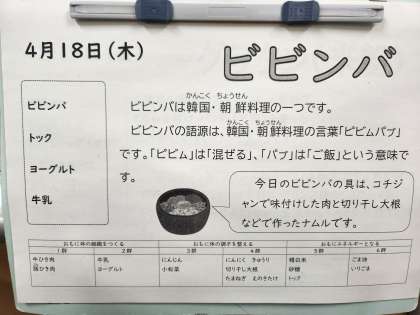 4月18日(木)
ビビンバ
ビビンバ
トック
ヨーグルト
牛乳
かんこく ちょうせん
ビビンバは韓国・朝鮮料理の一つです。
かんこく ちょうせん
ビビンバの語源は、韓国・朝鮮料理の言葉「ビビムパプ」
です。「ビビム」は「混ぜる」、「パプ」は「ご飯」という意味で
す。
今日のビビンバの具は、コチジ
ャンで味付けした肉と切り干し大根
などで作ったナムルです。
おもに体の組織をつくる おもに体の調子を整える おもにエネルギーとなる
1群 2群 3群 4群 5群 6群
牛ひき肉 牛乳 にんじん にんにく きゅうり 精白米 ごま油
豚ひき肉 ヨーグルト 小松菜 切り干し大根 砂糖 いりごま
たまねぎ えのきたけ トック